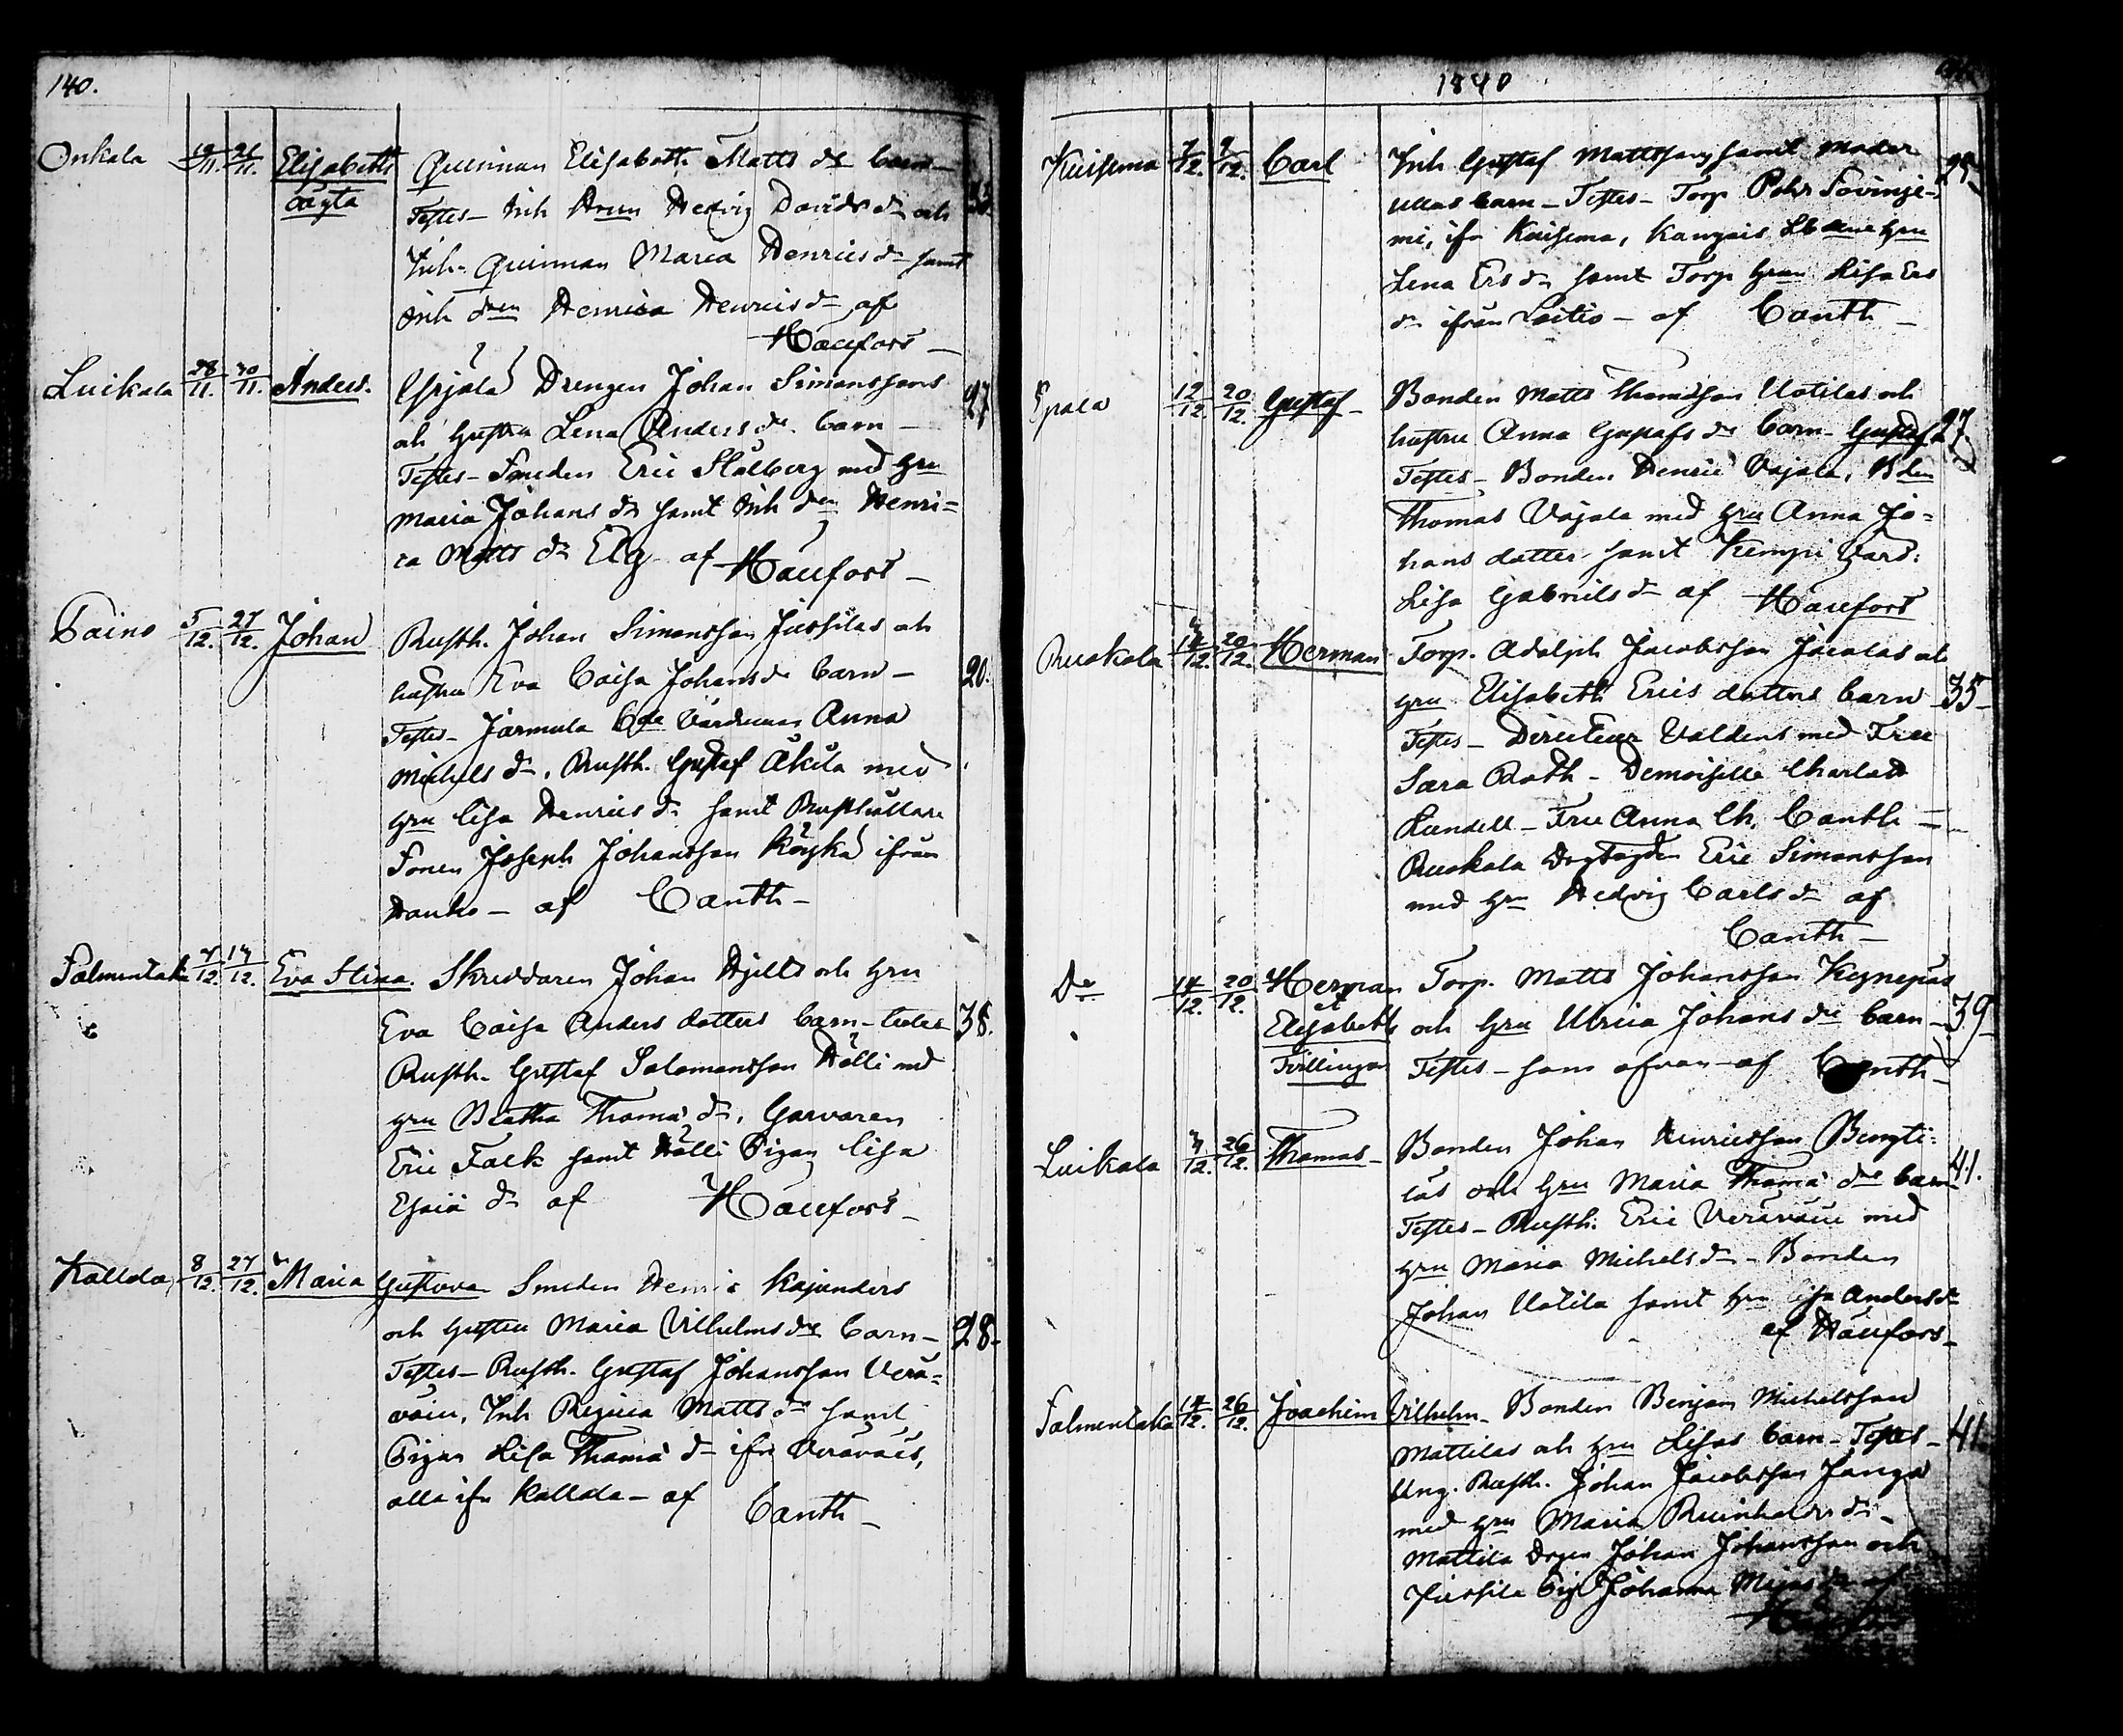 140.
Onkala 19/11. 21/11. Elisabeth Qvinnan Elisabeth Matts dr barn
Cajsa Testes - Inh Hedvig Davids dr och
Inh. Qvinnan Maria Henrics dr samt
Inh Henrica Henrics dr af
Haufors
Luikala 28/11. 30/11. Anders. Yrjälä Drengen Johan Simonssons 27
och hustru Lena Anders dr barn -
Testes - Smeden Eric Stålberg med hru
Maria Johans dr samt Inh Henri=
ca Matts dr Elg af Haufors -
Paino 5/12. 27/12. Johan Rusth. Johan Simonsson Jussilas och
hustru Eva Caisa Johans dr barn - 20.
Testes - Jarmula Anna
Michels dr, Rusth. Gustaf Äkilä med
hru Lisa Henrics dr samt Rusthållare
Sonen Joseph Johansson ifrån
Hauho - af Canth -
Salmentaka 7/12. 17/12. Eva Stina. Skreddaren Johan Hjelts och hru
Eva Caisa Anders dotters barn - testes 38.
Rusth. Gustaf Salomonsson Hölli med
hru Beatha Thomæ dr, Garvaren
Eric Falk samt Hölli Pigan Lisa
Esaiæ dr af Haufors -
Kallda 8/12. 27/12. Maria Gustava Smeden Henric Kajanders
och hustru Maria Vilhelms dr barn - 28.
Testes - Rusth. Gustaf Johansson Verä=
väin, Inh Regina Matts dr samt
Pigan Lisa Thomæ dr ifr
alla ifr Kallda - af Canth -
1840
Kuisema 7/12. 9/12. Carl Inh Gustaf Mattssons samt moder
Ullas barn - Testes - Torp Pehr Sovinje-
mi, ifr Kuisema, Kangais hru
Lena Ers dr samt Torp hrun Lisa Ers
dr ifrån Laitio - af Canth -
12/12. 20/12. Gustaf - Bonden Matts Thomasson Uotilas och
hustru Anna Gustafs dr barn - Gustaf 27
Testes - Bonden Henric Vajala, Bden
Thomas Vajala med hru Anna Jo=
hans dotter samt Kempi
Lisa Gabriels dr af Haufors
Ruokola 14/12. 20/12. Herman Torp. Adolph Jacobsson Jacalas och
hru Elisabeth Erics dotters barn 35
Testes - Directeur Valdens med Fru
Sara Roth - Demoiselle Charlott
Lundell - Fru Anna Ch. Canth -
Ruokola Eric Simonsson
med hru Hedvig Carls dr af
Canth -
Do 14/12. 20/12. Herman Torp. Matts Johansson
et
Elisabeth och hru Ulrica Johans dr barn - 39
Tvillingar Testes - som ofvan - af Canth -
Luikala 26/12. Thomas - Bonden Johan Henricsson Bengti=
läs och hru Maria Thomæ dr barn 41.
Testes - Rusth. Eric Veräväin med
hru Maria Michels dr - Bonden
Johan Uotila samt hru Lisa Anders dr
af Haufors -
Salmentaka 14/12. 26/12. Joachim Vilhelm - Bonden Benjam Michelsson
Mattilas och hru Lisas barn - Testes - 41.
Ung. Rusth. Johan Jacobsson
med hru Maria Reinholds dr -
Mattila Johan Johansson och
Jussila Pig Johanna